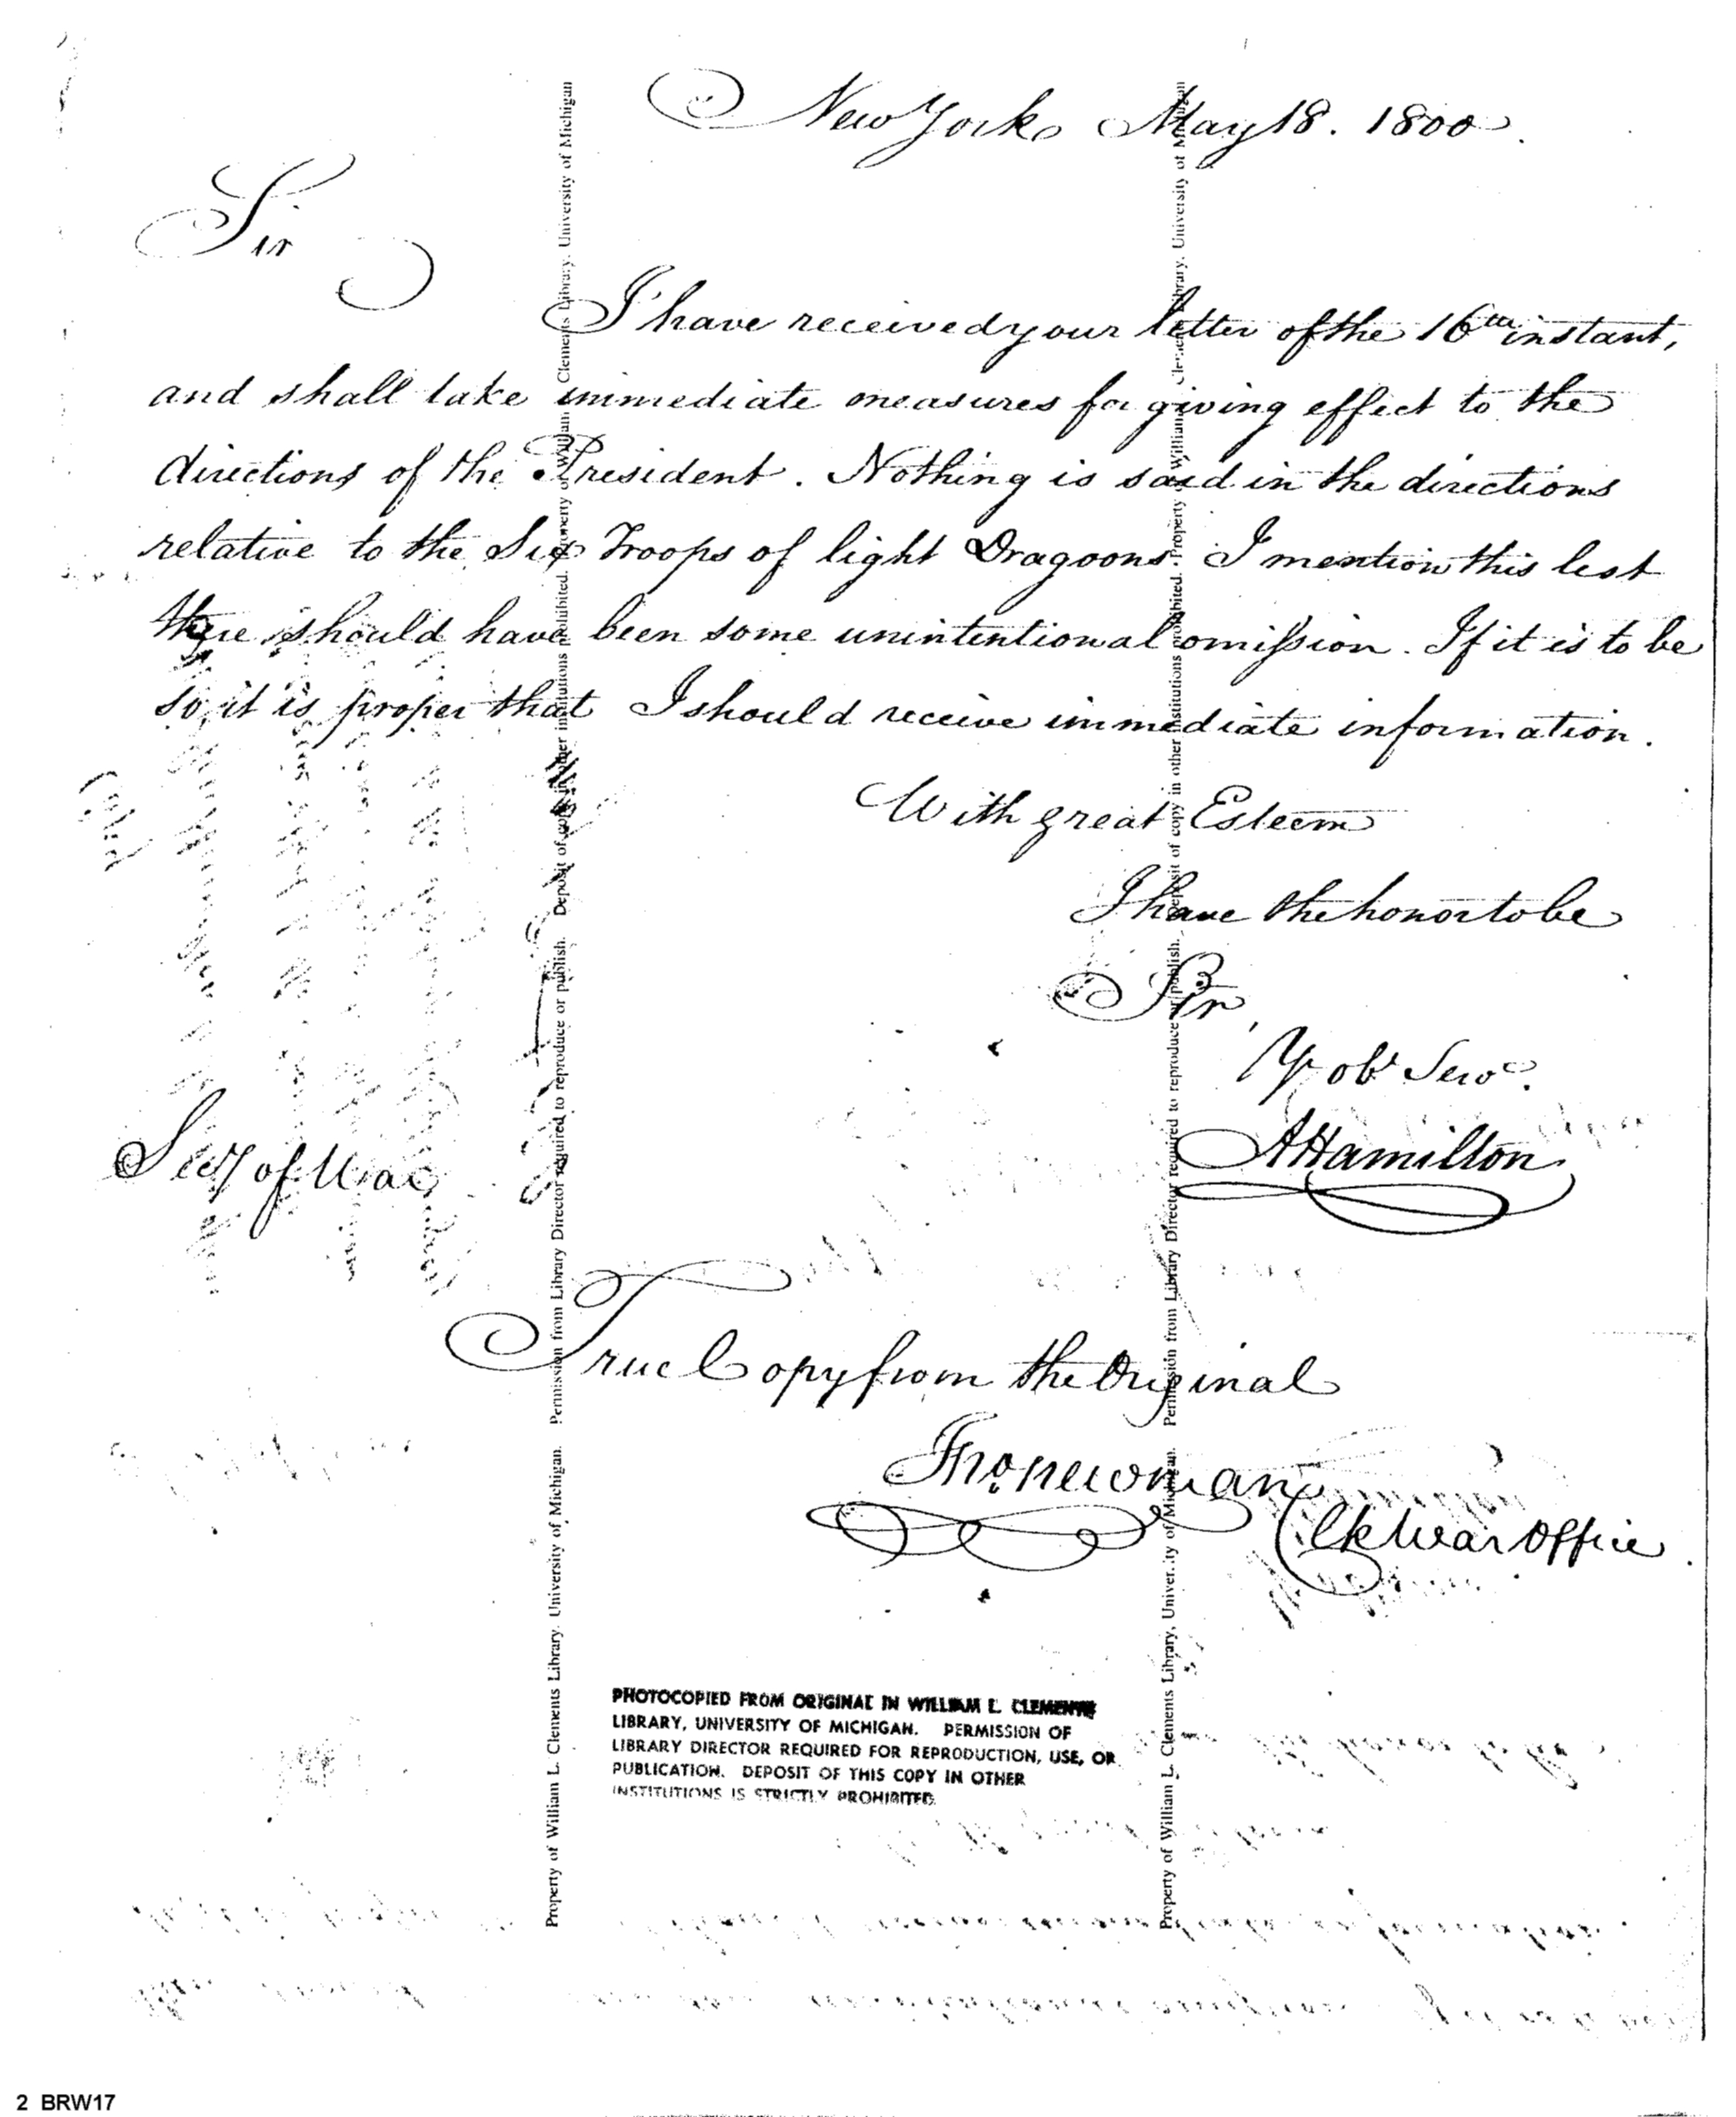 New York May 18. 1800.
Sir
I have received your letter of the 16th instant,
and shall take immediate measures for giving effect to the
directions of the President. Nothing is said in the directions
relative to the Six Troops of light Dragoons. I mention this lest
there should have been some unintentional omission. If it is to be
so, it is proper that I should receive immediate information.
With great Esteem
I have the honor to be
Sir,
Yr obt Servt.
Secy of War
AHamilton
True Copy from the Original
Tho. Newman
Clk War Office.
Property of William L. Clements Library, University of Michigan. Permission from Library Director required to reproduce or publish. Deposit of copy in other institutions prohibited. Property of William L. Clements Library, University of Michigan
Property of William L. Clements Library, University of Michigan. Permission from Library Director required to reproduce or publish. Deposit of copy in other institutions prohibited. Property of William L. Clements Library, University of Michigan
PHOTOCOPIED FROM ORIGINAL IN WILLIAM L. CLEMENTS
LIBRARY, UNIVERSITY OF MICHIGAN. PERMISSION OF
LIBRARY DIRECTOR REQUIRED FOR REPRODUCTION, USE, OR
PUBLICATION. DEPOSIT OF THIS COPY IN OTHER
INSTITUTIONS IS STRICTLY PROHIBITED.
2 BRW17